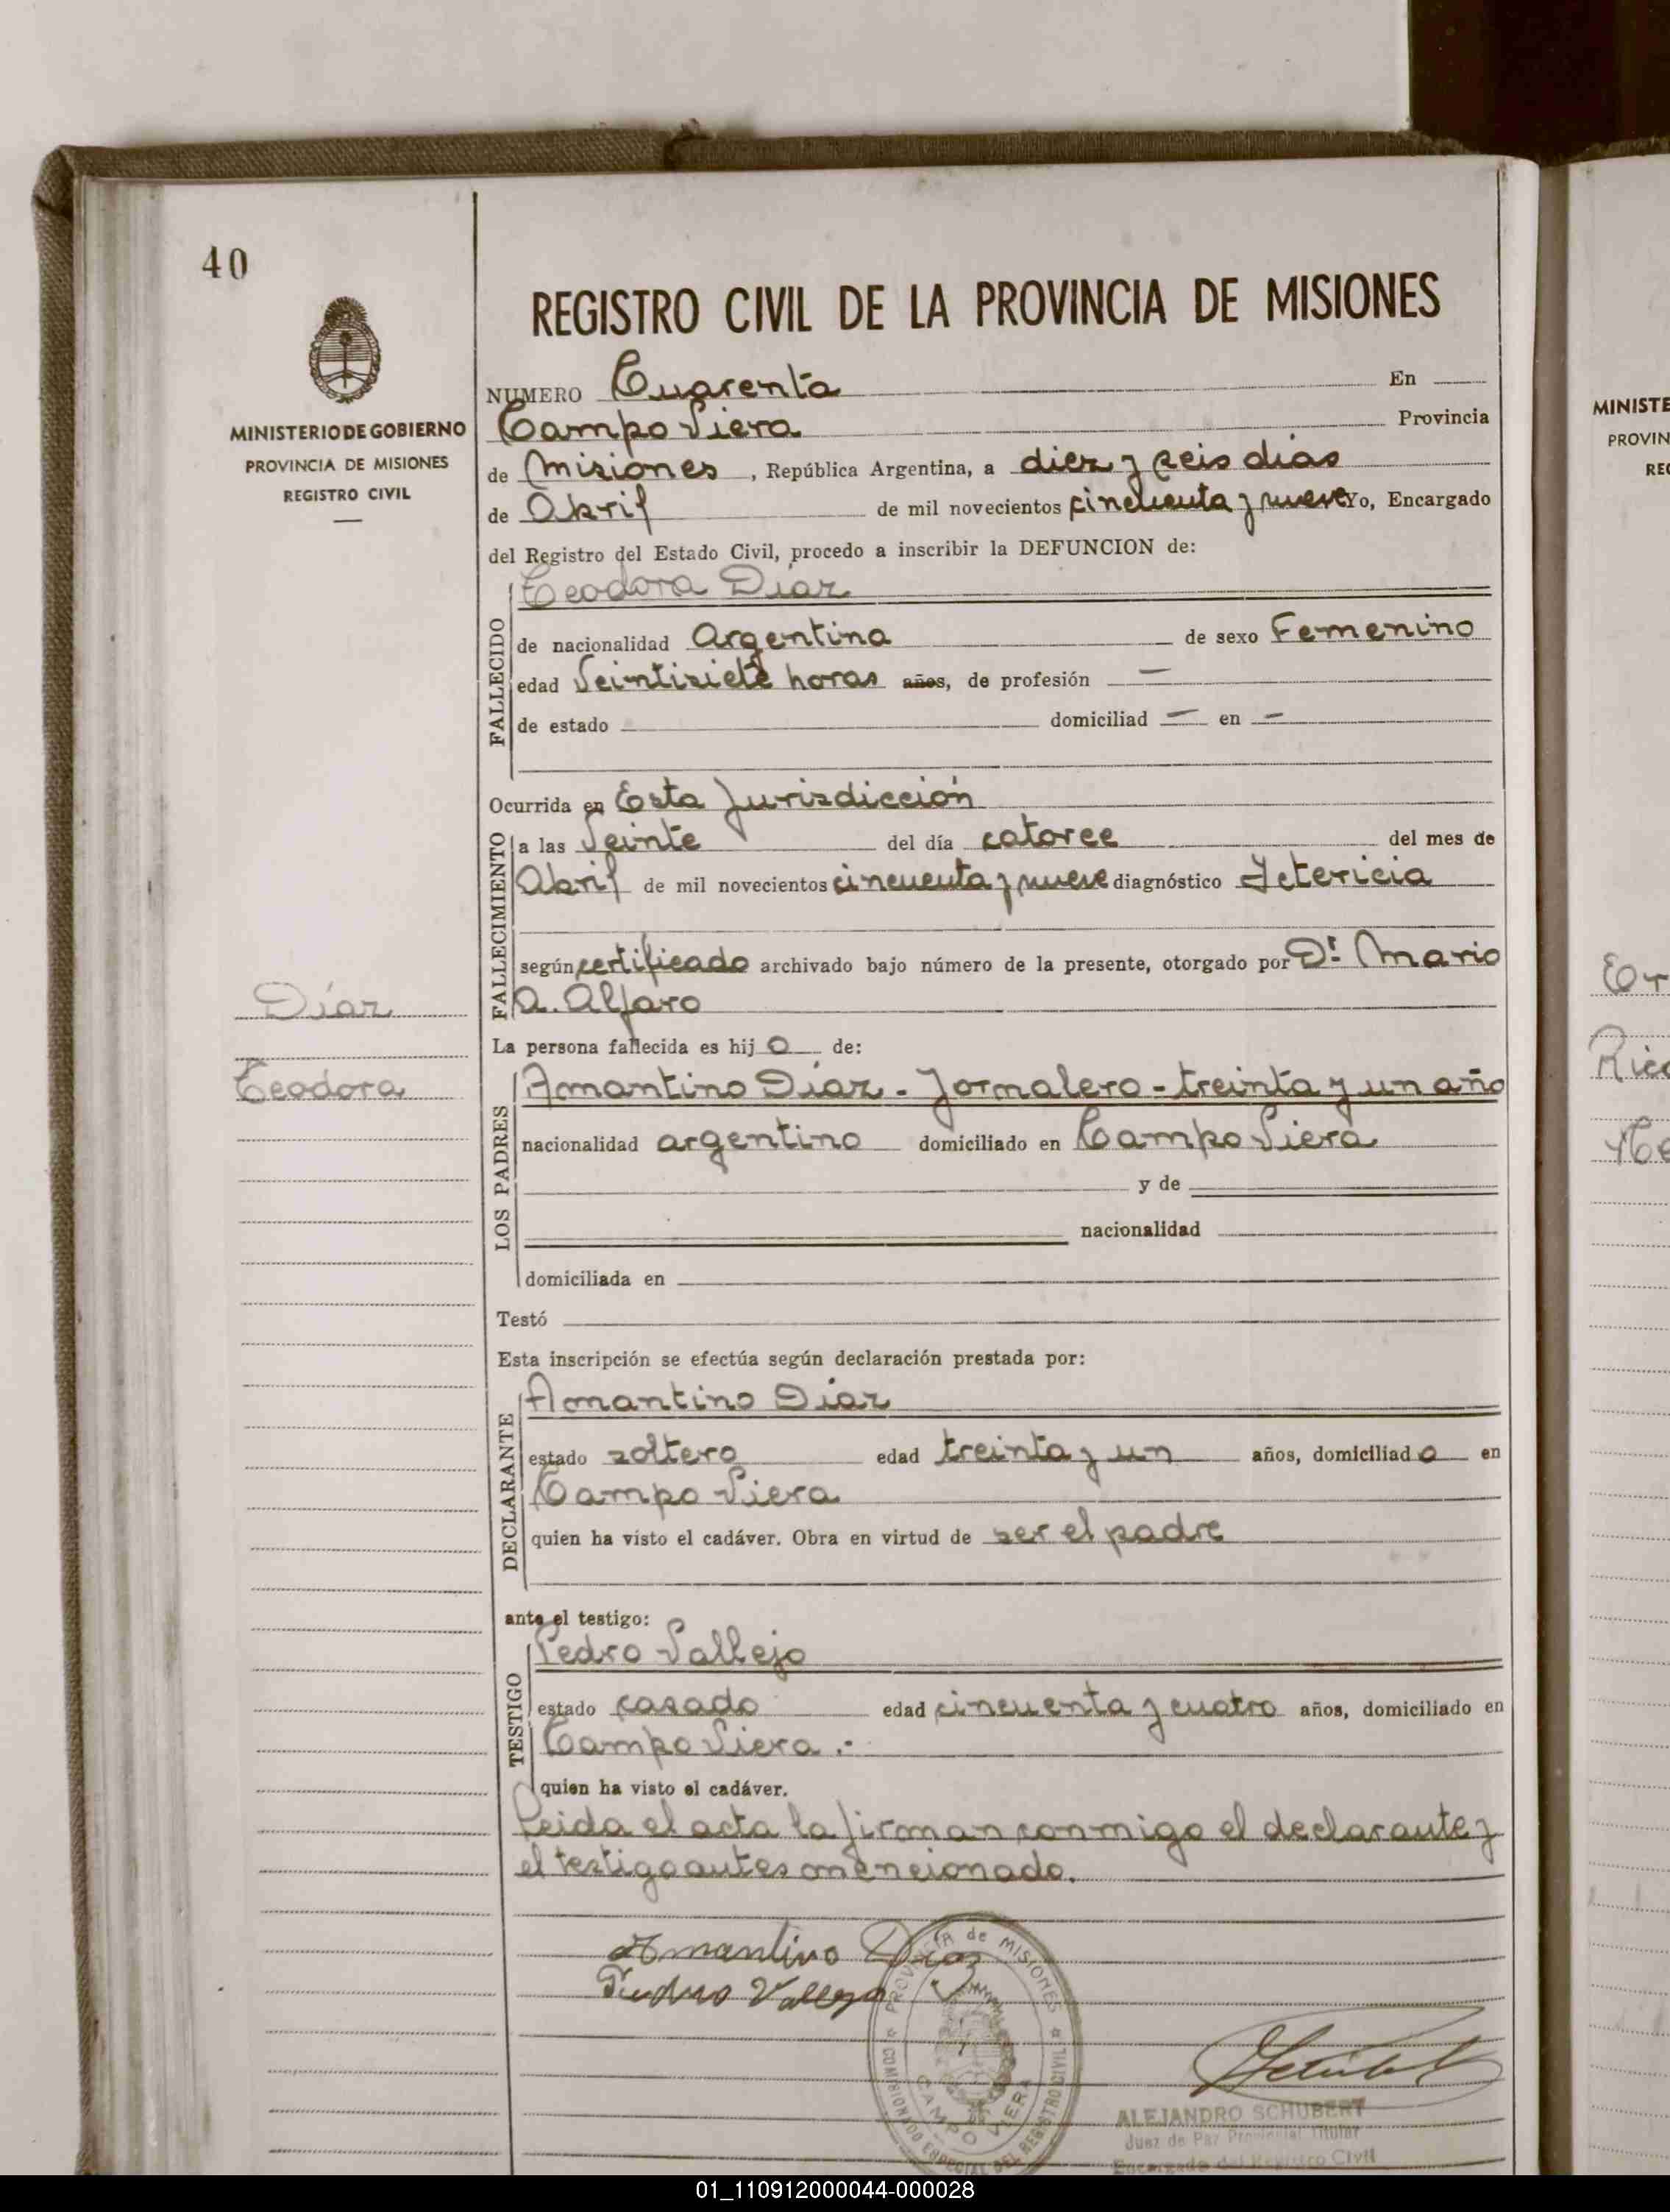 40
MINISTERIO DE GOBIERNO
PROVINCIA DE MISIONES
REGISTRO CIVIL
REGISTRO CIVIL DE LA PROVINCIA DE MISIONES
NUMERO Cuarenta En
Campo Viera Provincia
de Misiones, República Argentina, a diez y seis dias
de Abril de mil novecientos cincuenta y nueve Yo, Encargado
del Registro del Estado Civil, procedo a inscribir la DEFUNCION de:
FALLECIDO
Teodora Díaz
de nacionalidad Argentina de sexo Femenino
edad Veintisiete horas años, de profesión —
de estado domiciliad — en —
Ocurrida en Esta Jurisdicción
FALLECIMIENTO
a las Veinte del día catorce del mes de
Abril de mil novecientos cincuenta y nueve diagnóstico Ictericia
según certificado archivado bajo número de la presente, otorgado por Dr. Mario
A. Alfaro
Díaz
Teodora
La persona fallecida es hij a de:
LOS PADRES
Amantino Díaz - Jornalero - treinta y un año
nacionalidad argentino domiciliado en Campo Viera
y de
nacionalidad
domiciliada en
Testó
Esta inscripción se efectúa según declaración prestada por:
DECLARANTE
Amantino Díaz
estado soltero edad treinta y un años, domiciliad o en
Campo Viera
quien ha visto el cadáver. Obra en virtud de ser el padre
ante el testigo:
TESTIGO
Pedro Vallejo
estado casado edad cincuenta y cuatro años, domiciliado en
Campo Viera.-
quien ha visto el cadáver.
Leida el acta la firman conmigo el declarante y
el testigo antes mencionado.
Amantino Diaz
Pedro Vallejo
PROVINCIA de MISIONES
COMISIONADO ESPECIAL DEL REGISTRO CIVIL
CAMPO VIERA
ALEJANDRO SCHUBERT
Juez de Paz Provincial Titular
Encargado del Registro Civil
MINISTE
PROVIN
REG
Er
Ric
01_110912000044-000028